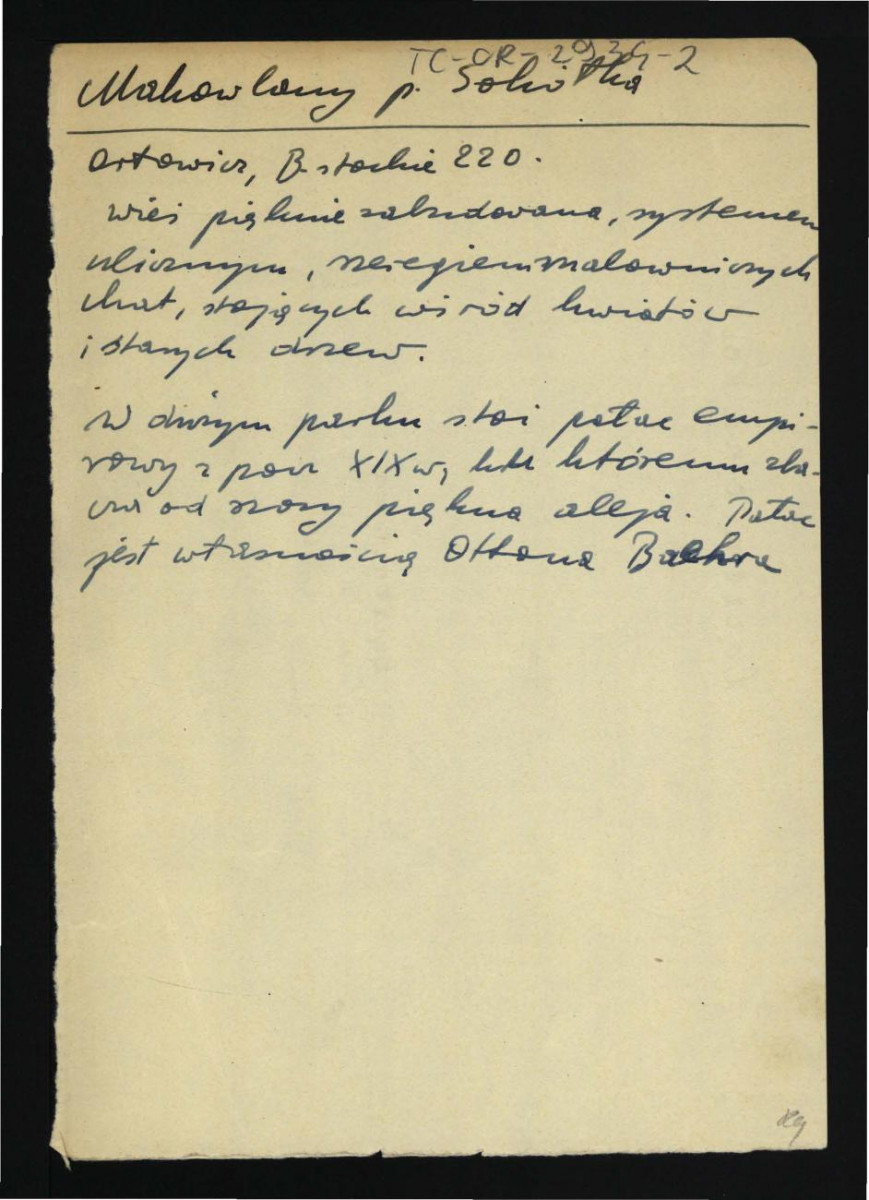 TC-OR-2936-2
Makowlany p. Sokółka
Orłowicz, B-stockie 220.
wieś pięknie zabudowana, systemem
ulicznym, szeregiem malowniczych
chat, stojących wśród kwiatów
i starych drzew.
W dużym parku stoi pałac empi-
rowy z pocz XIX w, ku któremu zba-
cza od szosy piękna aleja. Pałac
jest własnością Ottona